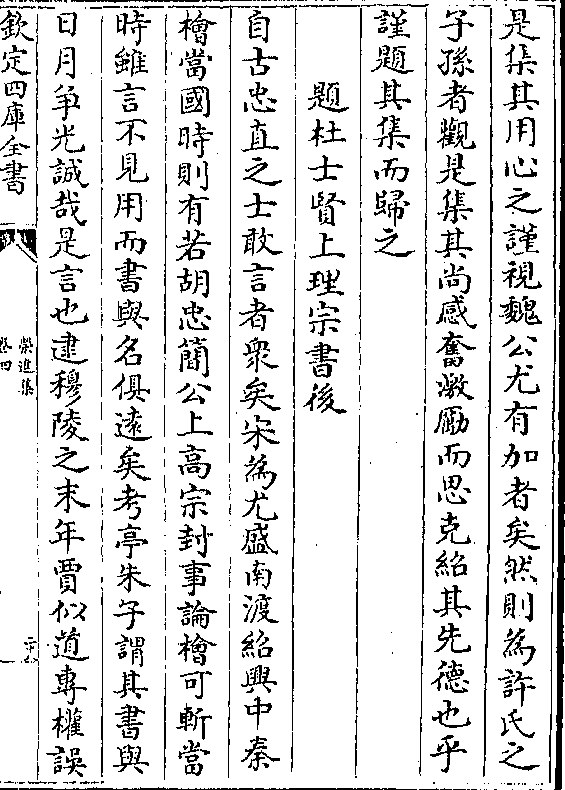 是集其用心之謹視魏公尤有加者矣然則為許氏之
子孫者觀是集其尚感奮激勵而思克紹其先德也乎
謹題其集而歸之
題杜士賢上理宗書後
自古忠直之士敢言者衆矣宋為尤盛南渡紹興中秦
檜當國時則有若胡忠簡公上高宗封事論檜可斬當
時雖言不見用而書與名俱遠矣考亭朱子謂其書與
日月爭光誠哉是言也逮穆陵之末年賈似道專權誤
欽定四庫全書
榮進集
卷四